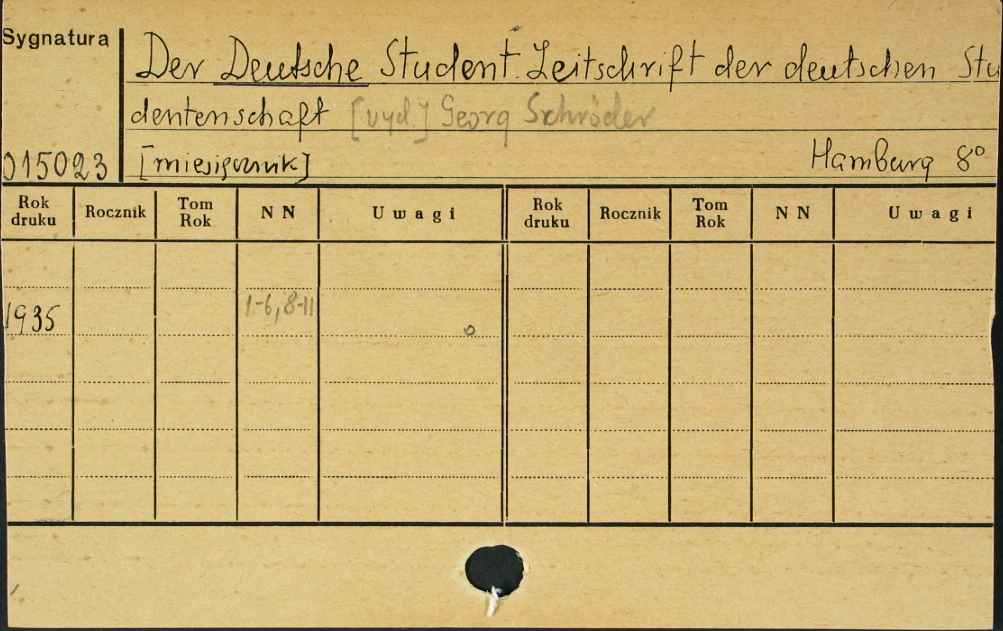 Sygnatura
Der Deutsche Student. Zeitschrift der deutschen Stu
dentenschaft [wyd.] Georg Schröder
015023 [miesięcznik] Hamburg 8°
Rok druku Rocznik Tom Rok N N Uwagi Rok druku Rocznik Tom Rok N N Uwagi
1935 1-6, 8-11